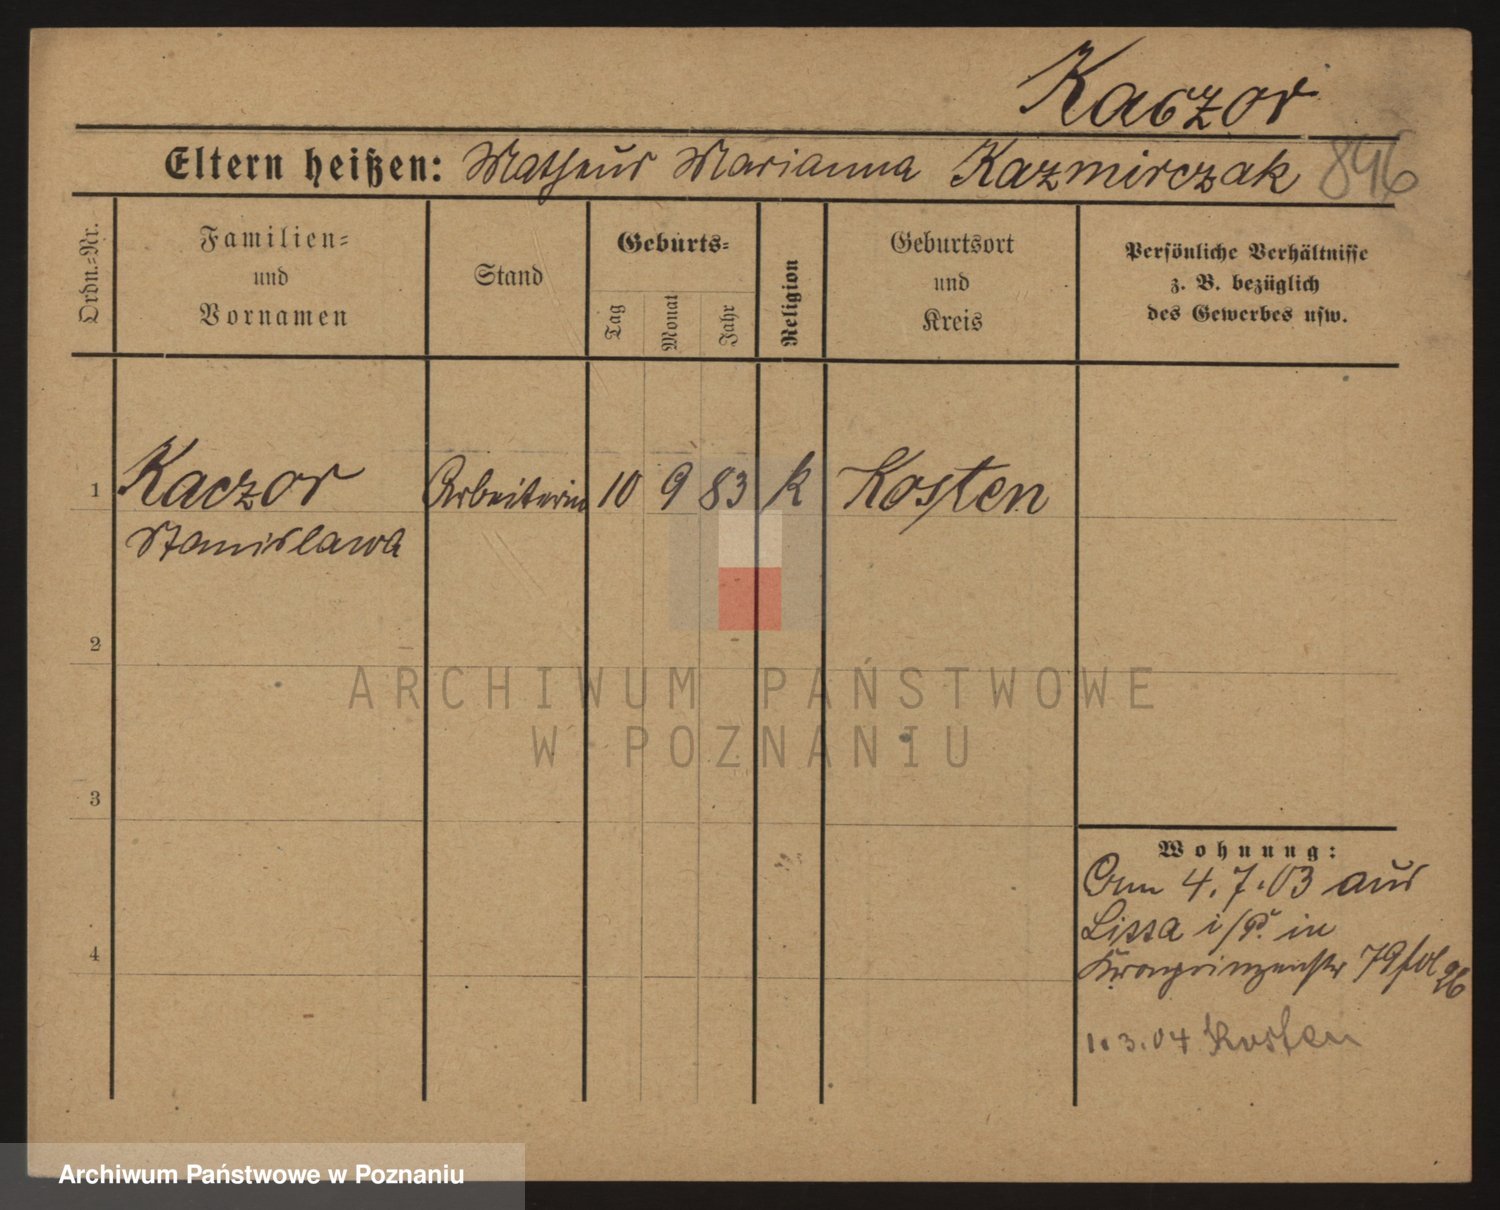 Kaczor
Eltern heißen: Matheus Marianna Kazmirczak 846
Ordn.-Nr.
Familien-
und
Vornamen
Stand
Geburts-
Tag
Monat
Jahr
Religion
Geburtsort
und
Kreis
Persönliche Verhältnisse
z. B. bezüglich
des Gewerbes usw.
1 Kaczor Arbeiterin 10 9 83 k Kosten
Stanislawa
2
ARCHIWUM PAŃSTWOWE
W POZNANIU
3
Wohnung:
Am 4.7.03 aus
Lissa i/P. in
4
Kronprinzenstr 79 fol 96
1.3.04 Kosten
Archiwum Państwowe w Poznaniu